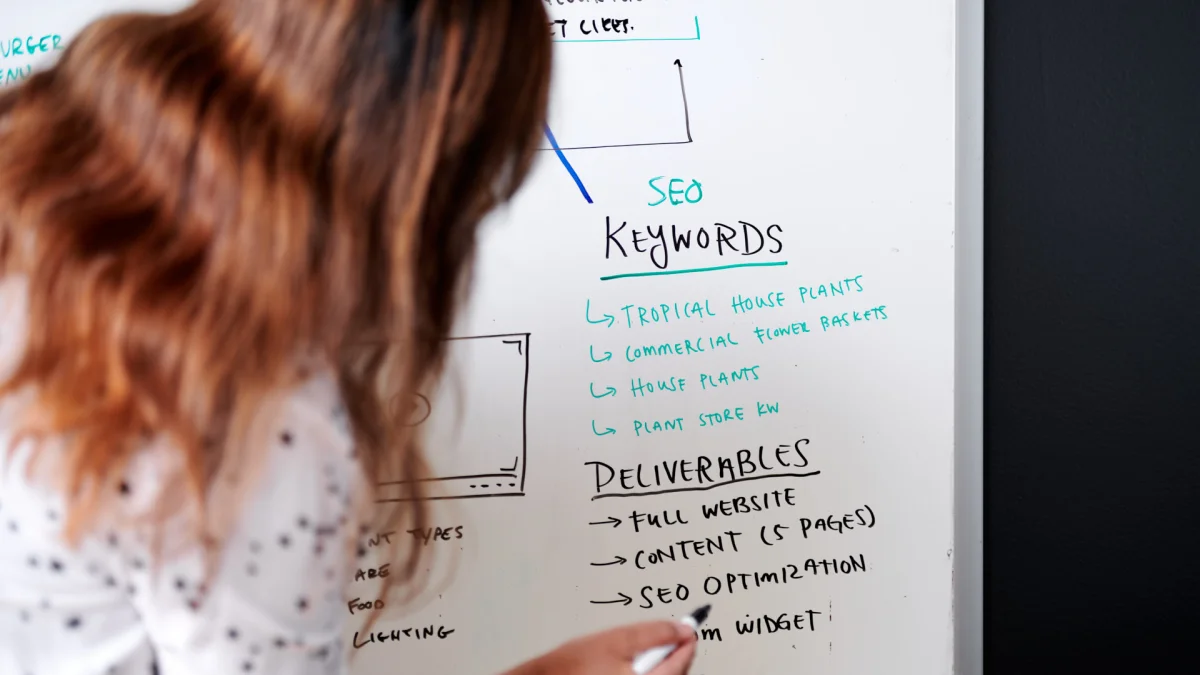 LIKES.
SEO
KEYWORDS
↳ TROPICAL HOUSE PLANTS
↳ COMMERCIAL FLOWER BASKETS
↳ HOUSE PLANTS
↳ PLANT STORE KW
DELIVERABLES
→ FULL WEBSITE
→ CONTENT (5 PAGES)
→ SEO OPTIMIZATION
WIDGET
TYPES
FOOD
LIGHTING